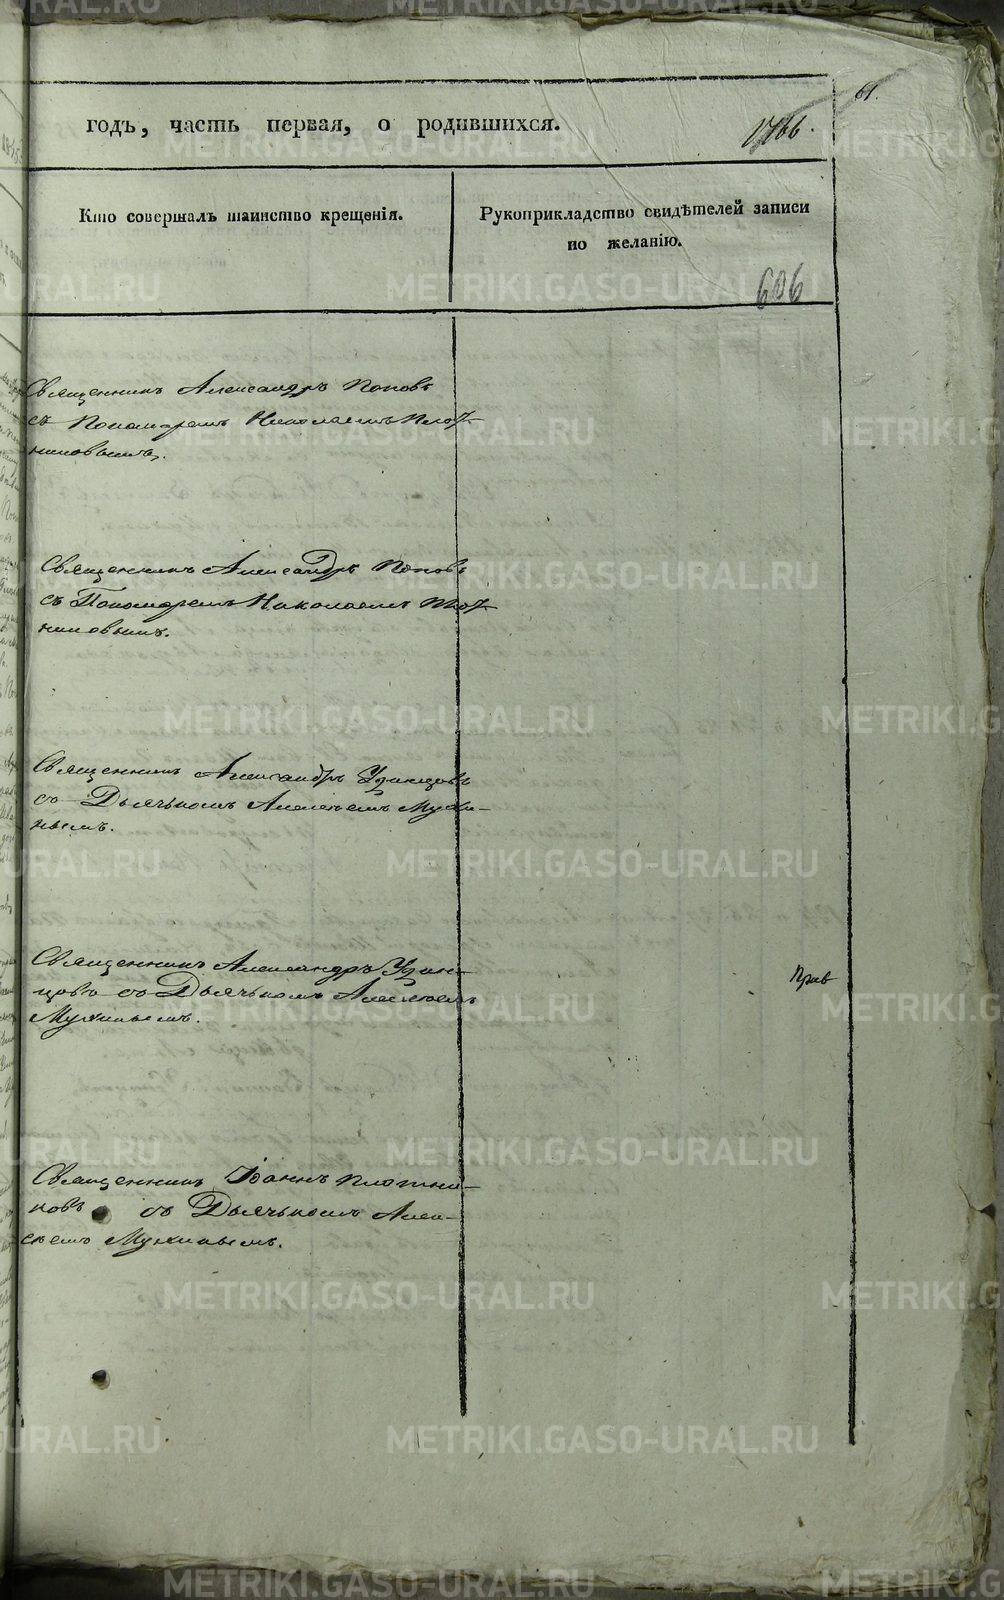 61.
годъ, часть первая, о родившихся.
1766.
Кто совершалъ таинство крещенія.
Рукоприкладство свидѣтелей записи
по желанію.
606
Священникъ Александръ Поповъ
съ Пономаремъ Николаемъ Плот-
никовымъ.
Священникъ Александръ Поповъ
съ Пономаремъ Николаемъ Плот-
никовымъ.
Священникъ Александръ Удинцовъ
со Дьячькомъ Алексѣемъ Мухи-
нымъ.
Священникъ Александръ Удин-
цовъ со Дьячькомъ Алексѣемъ
Мухинымъ.
Прав
Священникъ Іоаннъ Плотни-
ковъ со Дьячькомъ Алек-
сѣемъ Мухинымъ.
METRIKI.GASO-URAL.RU